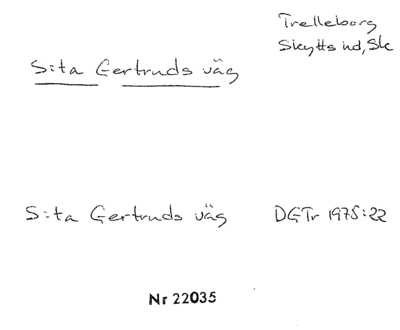 Trelleborg
Skytts hd, Sk
S:ta Gertruds väg
S:ta Gertruds väg DGTr 1975:22
Nr 22035